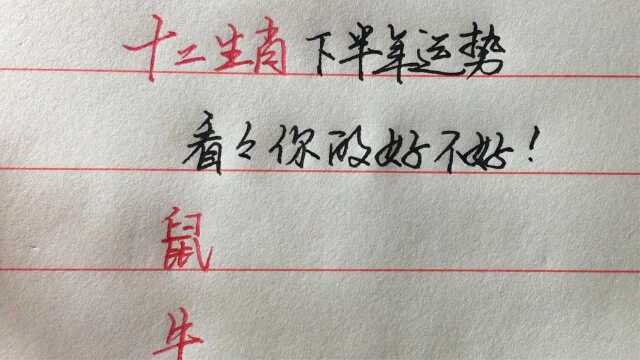 十二生肖下半年运势
看々你的好不好!
鼠
牛